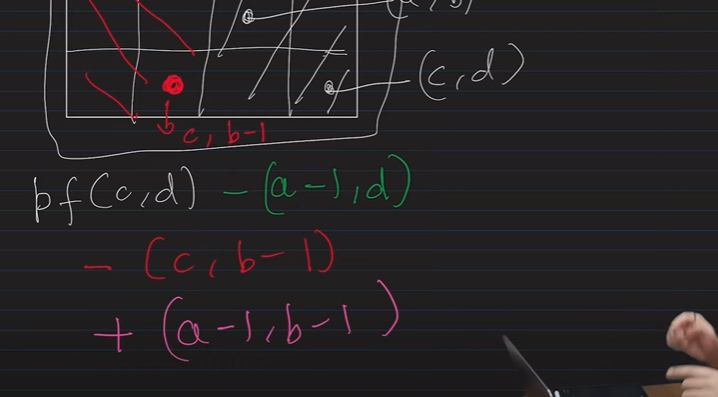 (c,d)
c, b-1
pf(c,d) - (a-1,d)
- (c, b-1)
+ (a-1, b-1)